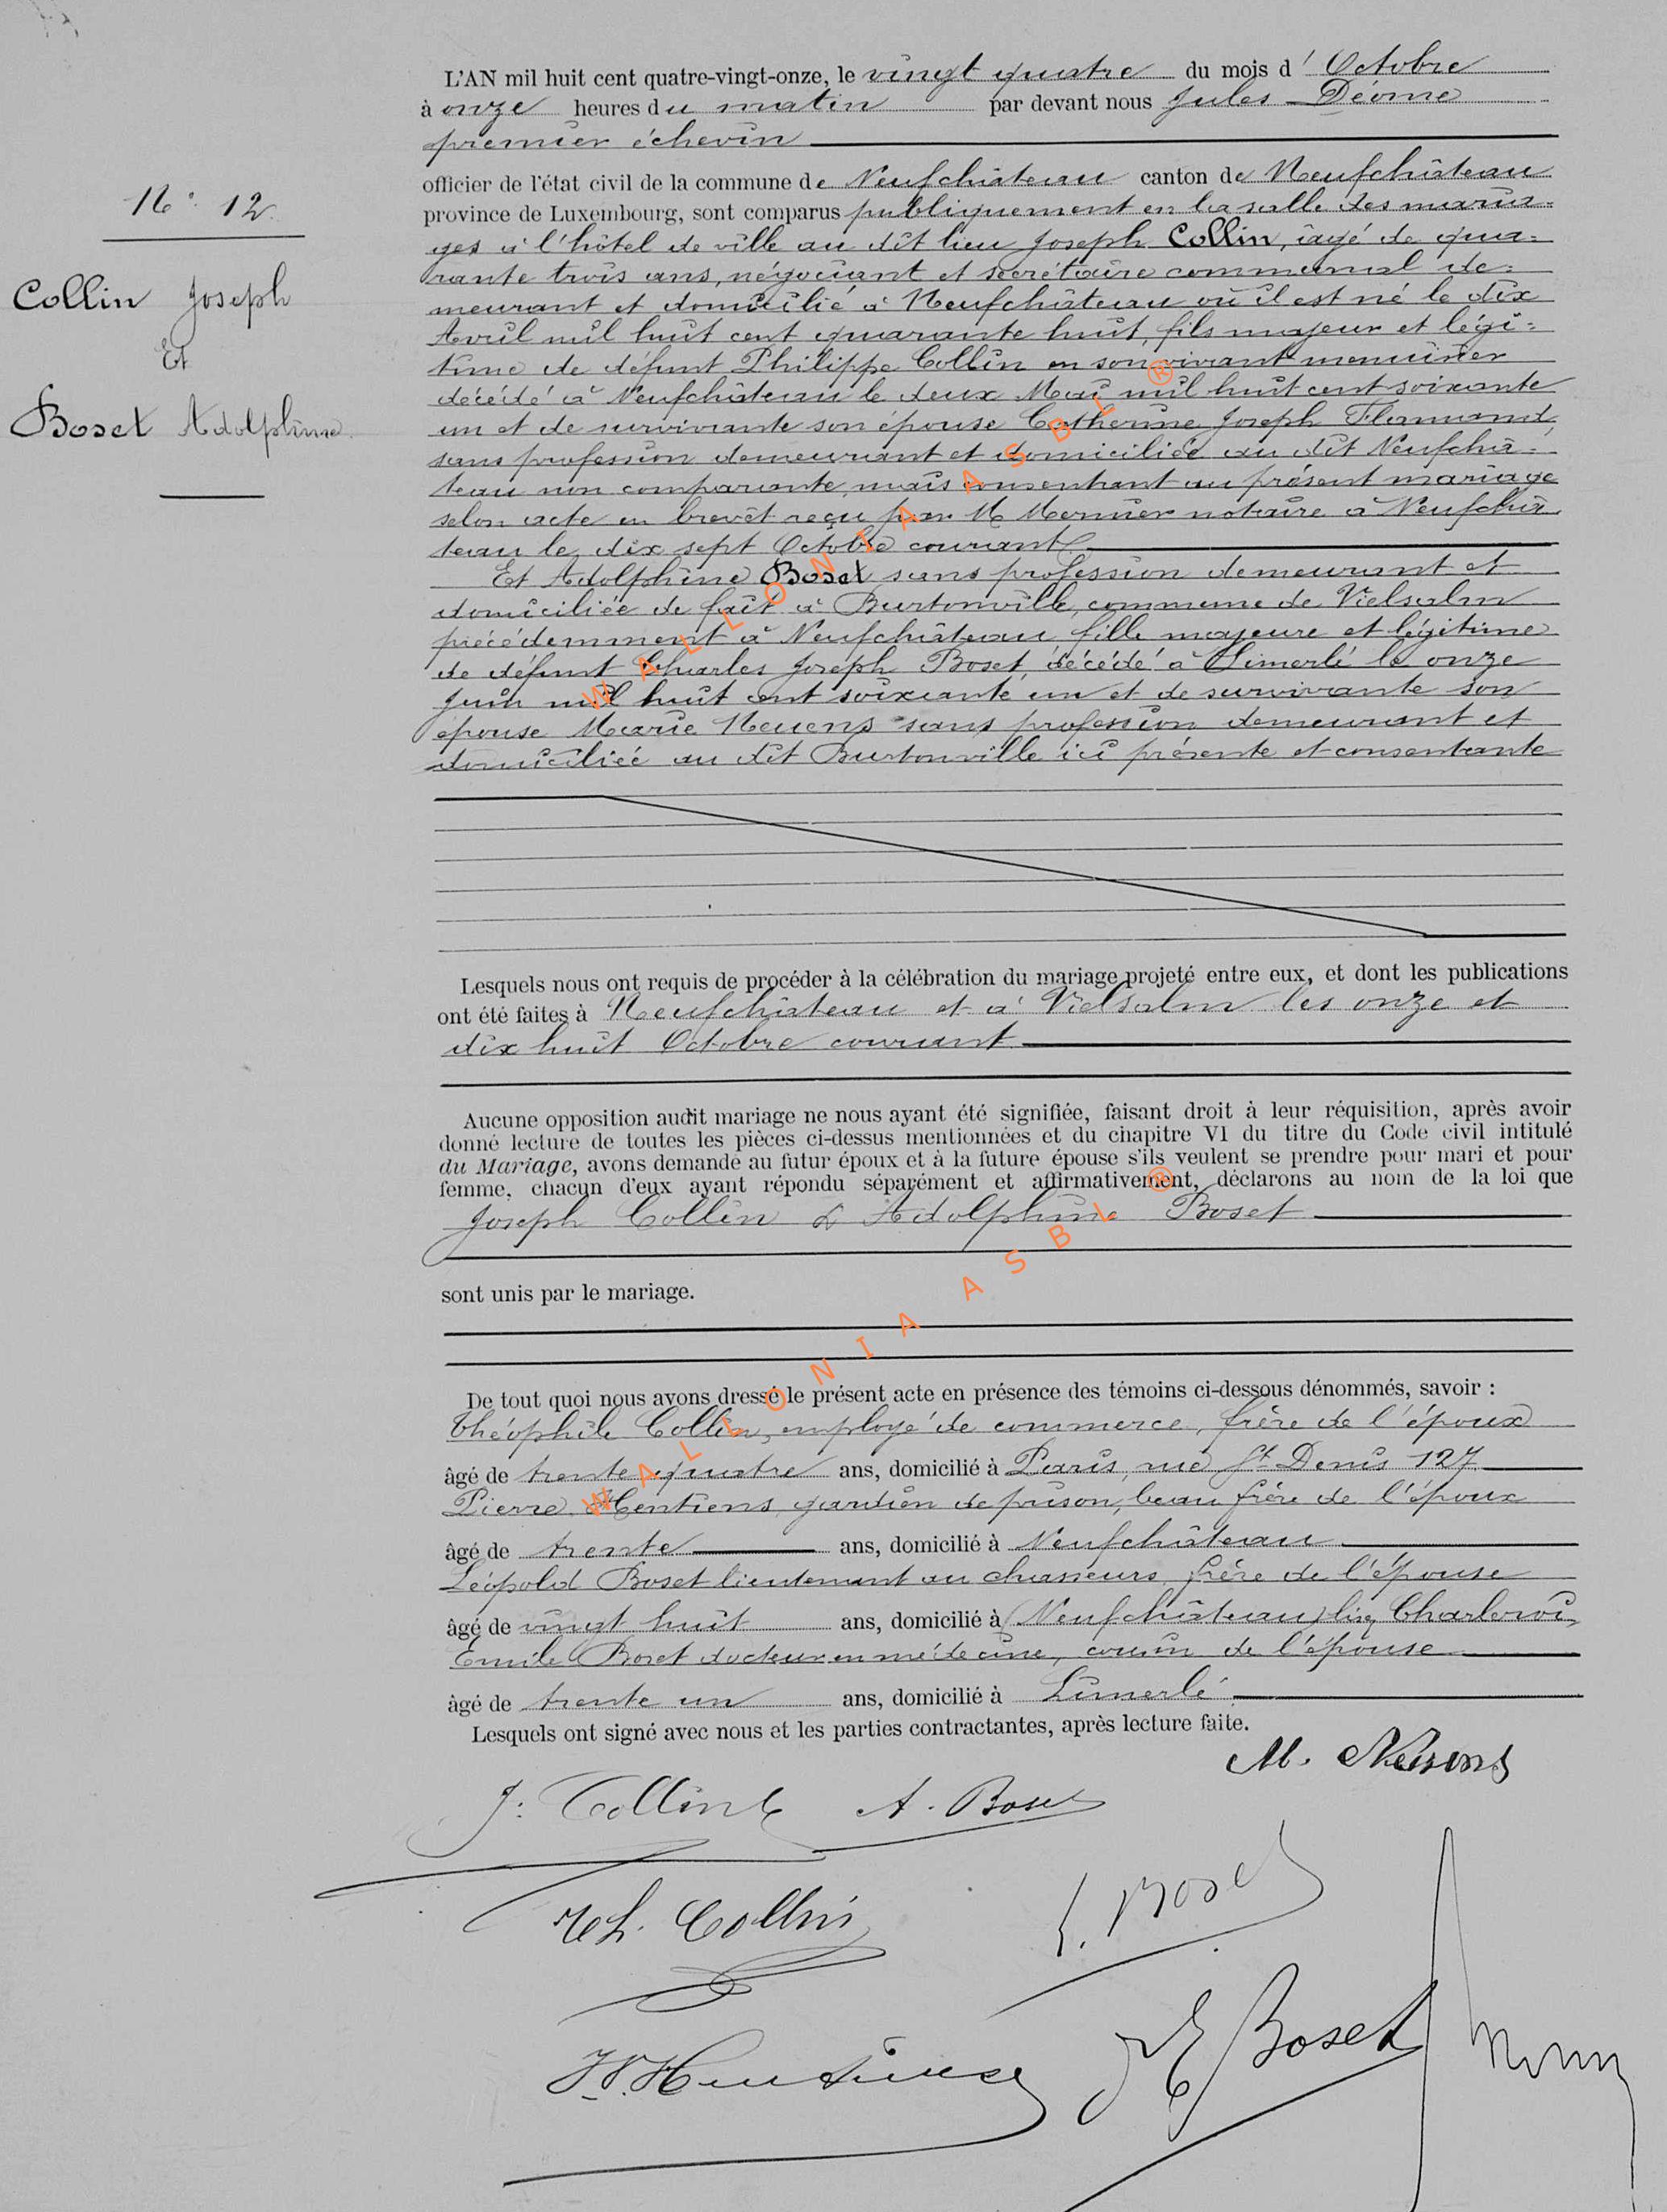 L'AN mil huit cent quatre-vingt-onze, le vingt quatre du mois d' Octobre
à onze heures du matin par devant nous Jules Déome
premier échevin
officier de l'état civil de la commune de Neufchâteau canton de Neufchâteau
province de Luxembourg, sont comparus publiquement en la salle des maria=
ges à l'hôtel de ville au dit lieu Joseph Collin, âgé de qua=
rante trois ans, négociant et secrétaire communal de=
meurant et domicilié à Neufchâteau où il est né le dix
Avril mil huit cent quarante huit, fils majeur et légi=
time de défunt Philippe Collin en son vivant menuisier
décédé à Neufchâteau le deux Mai mil huit cent soixante
un et de survivante son épouse Catherine Joseph Flamand,
sans profession demeurant et domiciliée au dit Neufchâ=
teau non comparante, mais consentant au présent mariage
selon acte en brevêt reçu par M Mernier notaire à Neufchâ
teau le dix sept Octobre courant
Et Adolphine Boset sans profession demeurant et
domiciliée de fait à Burtonville, commune de Vielsalm
précédemment à Neufchâteau fille majeure et légitime
de défunt Charles Joseph Boset, décédé à Limerlé le onze
Juin mil huit cent soixante un et de survivante son
épouse Marie Neuens sans profession demeurant et
domiciliée au dit Burtonville ici présente et consentante
N° 12
Collin Joseph
Et
Boset Adolphine
Lesquels nous ont requis de procéder à la célébration du mariage projeté entre eux, et dont les publications
ont été faites à Neufchâteau et à Vielsalm les onze et
dix huit Octobre courant
Aucune opposition audit mariage ne nous ayant été signifiée, faisant droit à leur réquisition, après avoir
donné lecture de toutes les pièces ci-dessus mentionnées et du chapitre VI du titre du Code civil intitulé
du Mariage, avons demandé au futur époux et à la future épouse s'ils veulent se prendre pour mari et pour
femme, chacun d'eux ayant répondu séparément et affirmativement, déclarons au nom de la loi que
Joseph Collin & Adolphine Boset
sont unis par le mariage.
De tout quoi nous avons dressé le présent acte en présence des témoins ci-dessous dénommés, savoir :
Théophile Collin, employé de commerce, frère de l'époux
âgé de trente quatre ans, domicilié à Paris, rue St Denis 127
Pierre Hentiens, gardien de prison, beau frère de l'époux
âgé de trente ans, domicilié à Neufchâteau
Léopold Boset lieutenant au chasseurs, frère de l'épouse
âgé de vingt huit ans, domicilié à (Neufchâteau) lisez Charleroi,
Emile Boset docteur en médecine, cousin de l'épouse
âgé de trente un ans, domicilié à Limerlé
Lesquels ont signé avec nous et les parties contractantes, après lecture faite.
M. Neuens
J. Collin A. Boset
Th. Collin L. Boset
E Boset
WALLONIA ASBL ®
WALLONIA ASBL ®